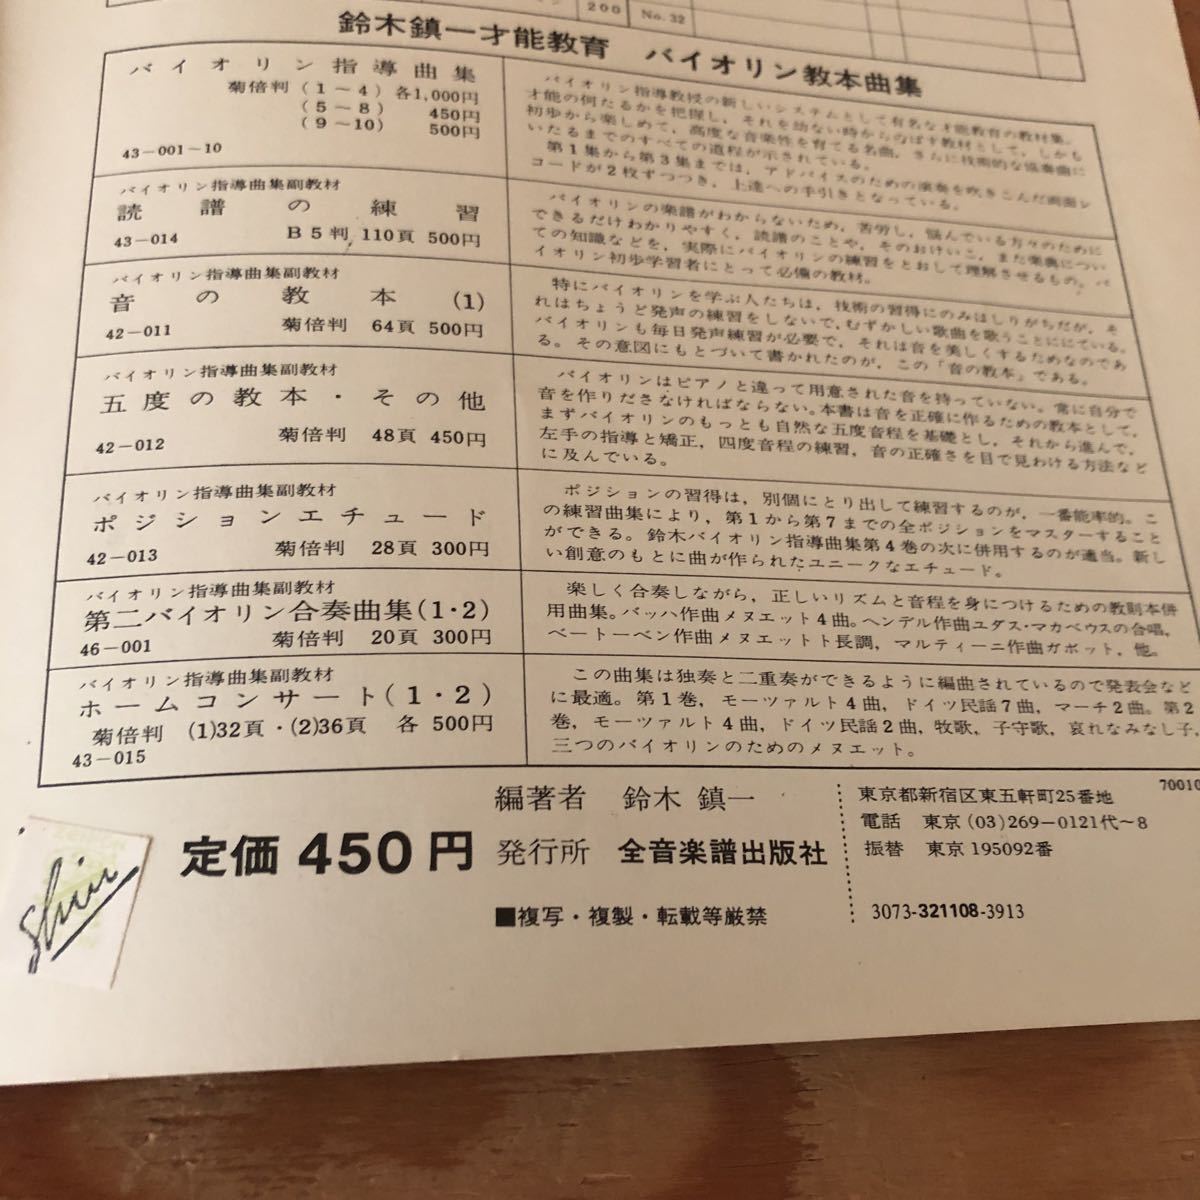 200 No. 32
鈴木鎮一才能教育 バイオリン教本曲集
バイオリン指導曲集
菊倍判 (1〜4) 各1,000円
(5〜8) 450円
(9〜10) 500円
43-001〜10
バイオリン指導教授の新しいシステムとして有名な才能教育の教材集。
才能の何たるかを把握し、それを幼ない時からのばす教材として、しかも
初歩から楽しめて、高度な音楽性を育てる名曲、さらに技術的な協奏曲に
いたるまでのすべての道程が示されている。
第1集から第3集までは、アドバイスのための演奏を吹きこんだ両面レ
コードが2枚ずつつき、上達への手引きとなっている。
バイオリン指導曲集副教材
読譜の練習
43-014 B5判, 110頁 500円
バイオリンの楽譜がわからないため、苦労し、悩んでいる方々のために
できるだけわかりやすく、読譜のことや、そのおけいこ、また楽典につい
ての知識などを、実際にバイオリンの練習をとおして理解させるもの。バ
イオリン初歩学習者にとって必備の教材。
バイオリン指導曲集副教材
音の教本 (1)
42-011 菊倍判 64頁 500円
特にバイオリンを学ぶ人たちは、技術の習得にのみはしりがちだが、そ
れはちょうど発声の練習をしないで、むずかしい歌曲を歌うことににている。
バイオリンも毎日発声練習が必要で、それは音を美しくするためなのであ
る。その意図にもとづいて書かれたのが、この「音の教本」である。
バイオリン指導曲集副教材
五度の教本・その他
42-012 菊倍判 48頁 450円
バイオリンはピアノと違って用意された音を持っていない。常に自分で
音を作りださなければならない。本書は音を正確に作るための教本として、
まずバイオリンのもっとも自然な五度音程を基礎とし、それから進んで、
左手の指導と矯正、四度音程の練習、音の正確さを目で見わける方法など
に及んでいる。
バイオリン指導曲集副教材
ポジションエチュード
42-013 菊倍判 28頁 300円
ポジションの習得は、別個にとり出して練習するのが、一番能率的。こ
の練習曲集により、第1から第7までの全ポジションをマスターすること
ができる。鈴木バイオリン指導曲集第4巻の次に併用するのが適当。新し
い創意のもとに曲が作られたユニークなエチュード。
バイオリン指導曲集副教材
第二バイオリン合奏曲集(1・2)
46-001 菊倍判 20頁 300円
楽しく合奏しながら、正しいリズムと音程を身につけるための教則本併
用曲集。バッハ作曲メヌエット4曲。ヘンデル作曲ユダス・マカベウスの合唱,
ベートーベン作曲メヌエットト長調, マルティーニ作曲ガボット, 他。
バイオリン指導曲集副教材
ホームコンサート(1・2)
菊倍判 (1)32頁・(2)36頁 各 500円
43-015
この曲集は独奏と二重奏ができるように編曲されているので発表会など
に最適。第1巻, モーツァルト4曲, ドイツ民謡7曲, マーチ2曲。第2
巻, モーツァルト4曲, ドイツ民謡2曲, 牧歌, 子守歌, 哀れなみなし子,
三つのバイオリンのためのメヌエット。
70010
編著者 鈴木 鎮一
定価 450円
発行所 全音楽譜出版社
■複写・複製・転載等厳禁
東京都新宿区東五軒町25番地
電話 東京(03)269-0121代〜8
振替 東京 195092番
3073-321108-3913
Shin